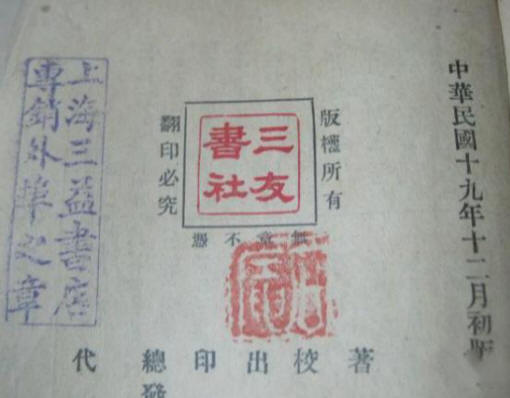 中華民國十九年十二月初版
版權所有
三友
書社
翻印必究
無章不憑
著 校 出 印 總 代
發
上海三益書店
專銷外埠之章